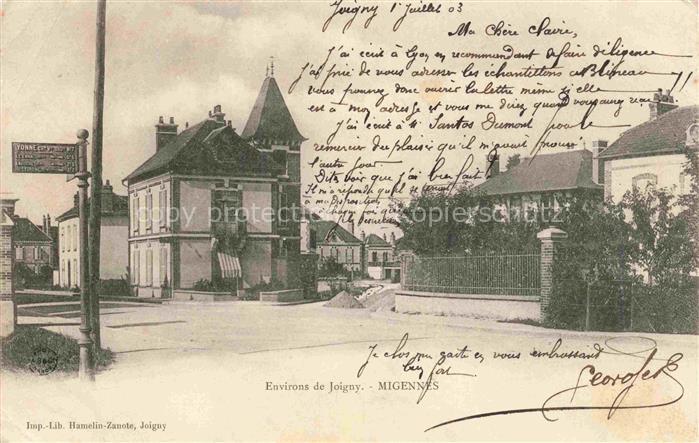 Joigny 1 Juillet 03
Ma Chère Claire,
J'ai écrit à Lyon en recommandant de faire diligence
J'ai prié de vous adresser les échantillons à Bléneau
vous pouvez donc ouvrir la lettre même si elle
est à mon adresse et vous me direz quand vous
J'ai écrit à Mr Santos Dumont pour le
remercier du plaisir qu'il m'avait fait
l'autre jour
Dites voir que j'ai bien fait
Il m'a répondu qu'il se
à ma disposition
chaque fois que
YONNE
copy protected
Je clos ma carte en vous embrassant
bien fort
Georges
Environs de Joigny. - MIGENNES
Imp.-Lib. Hamelin-Zanote, Joigny